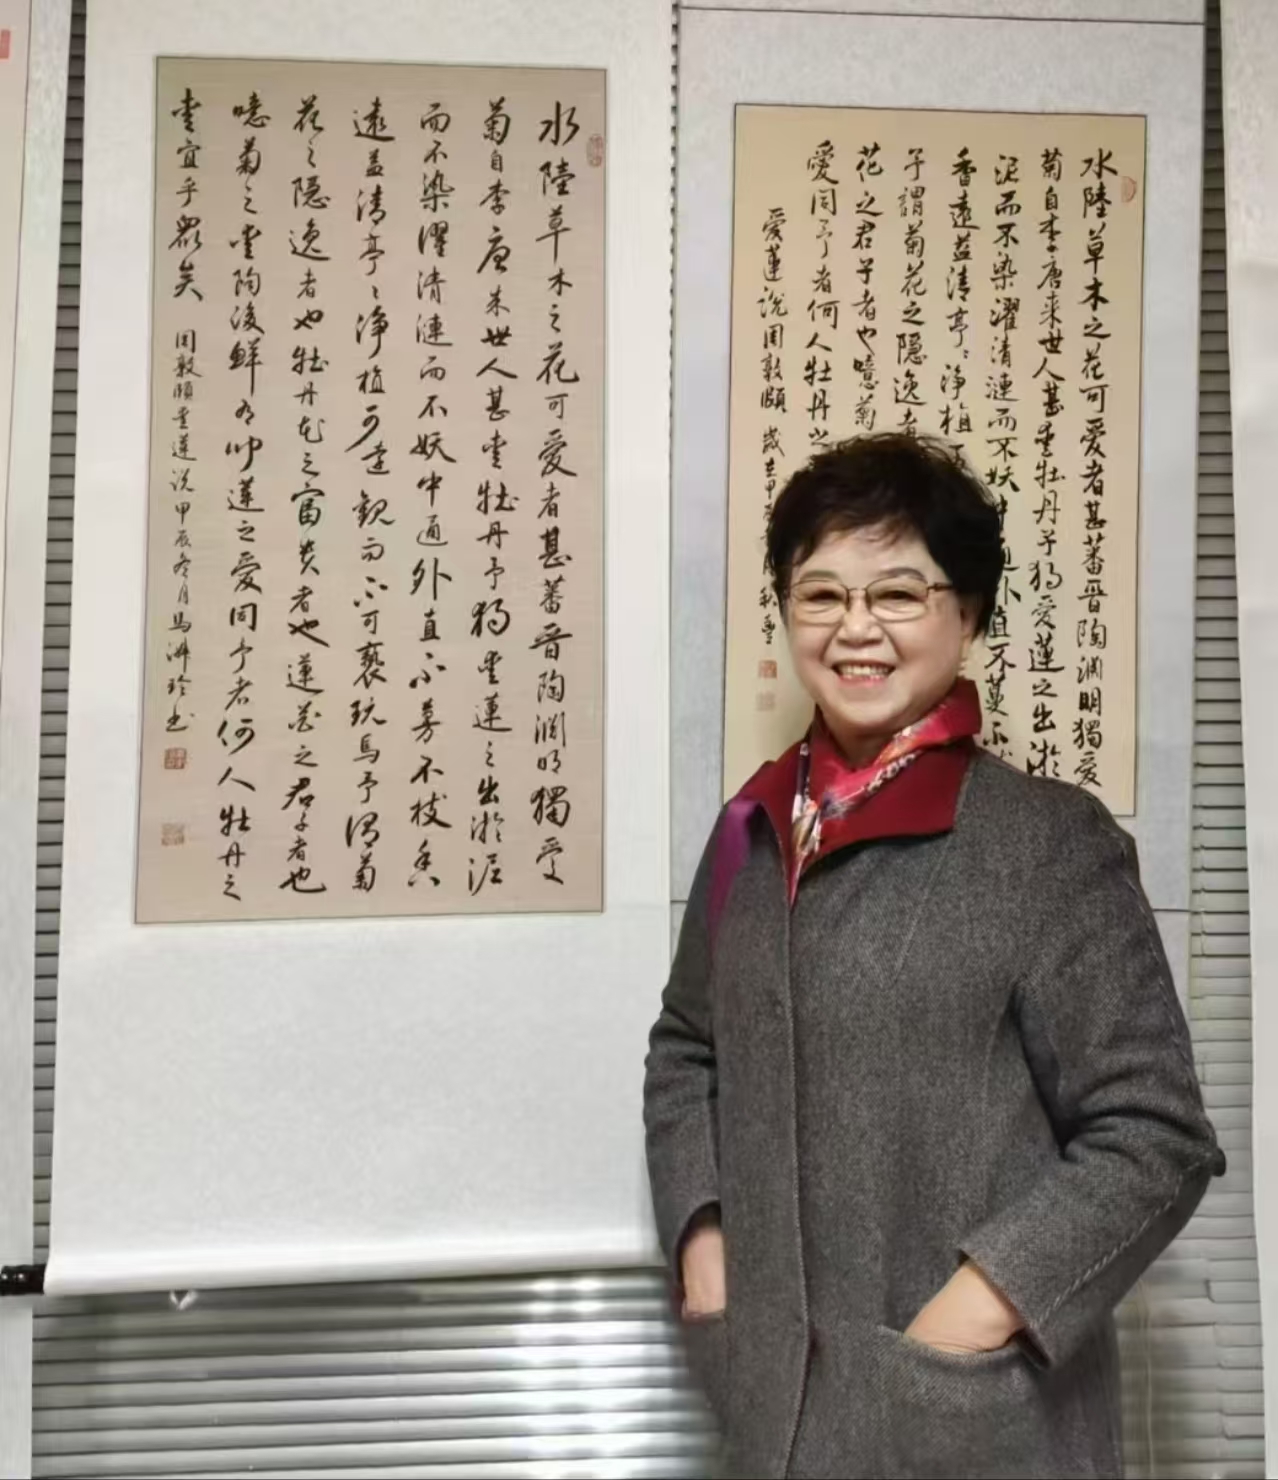 水陸草木之花可愛者甚蕃晋陶渊明獨愛
菊自李唐来世人甚愛牡丹予独愛蓮之出淤泥
而不染濯清漣而不妖中通外直不蔓不枝香
遠益清亭〻净植可遠観而不可亵玩焉予謂菊
花之隐逸者也牡丹花之富貴者也蓮花之君子者也
噫菊之愛陶後鮮有聞蓮之爱同予者何人牡丹之
愛宜乎眾矣
周敦頤愛蓮说甲辰冬月馬淋玲书
水陸草木之花可爱者甚蕃晋陶渊明獨爱
菊自李唐来世人甚愛牡丹予独爱蓮之出淤
泥而不染濯清漣而不妖中通外直不蔓不
香遠益清亭〻净植
予謂菊花之隐逸者
花之君子者也噫菊
愛同予者何人牡丹之
爱蓮说周敦頤 歲在甲